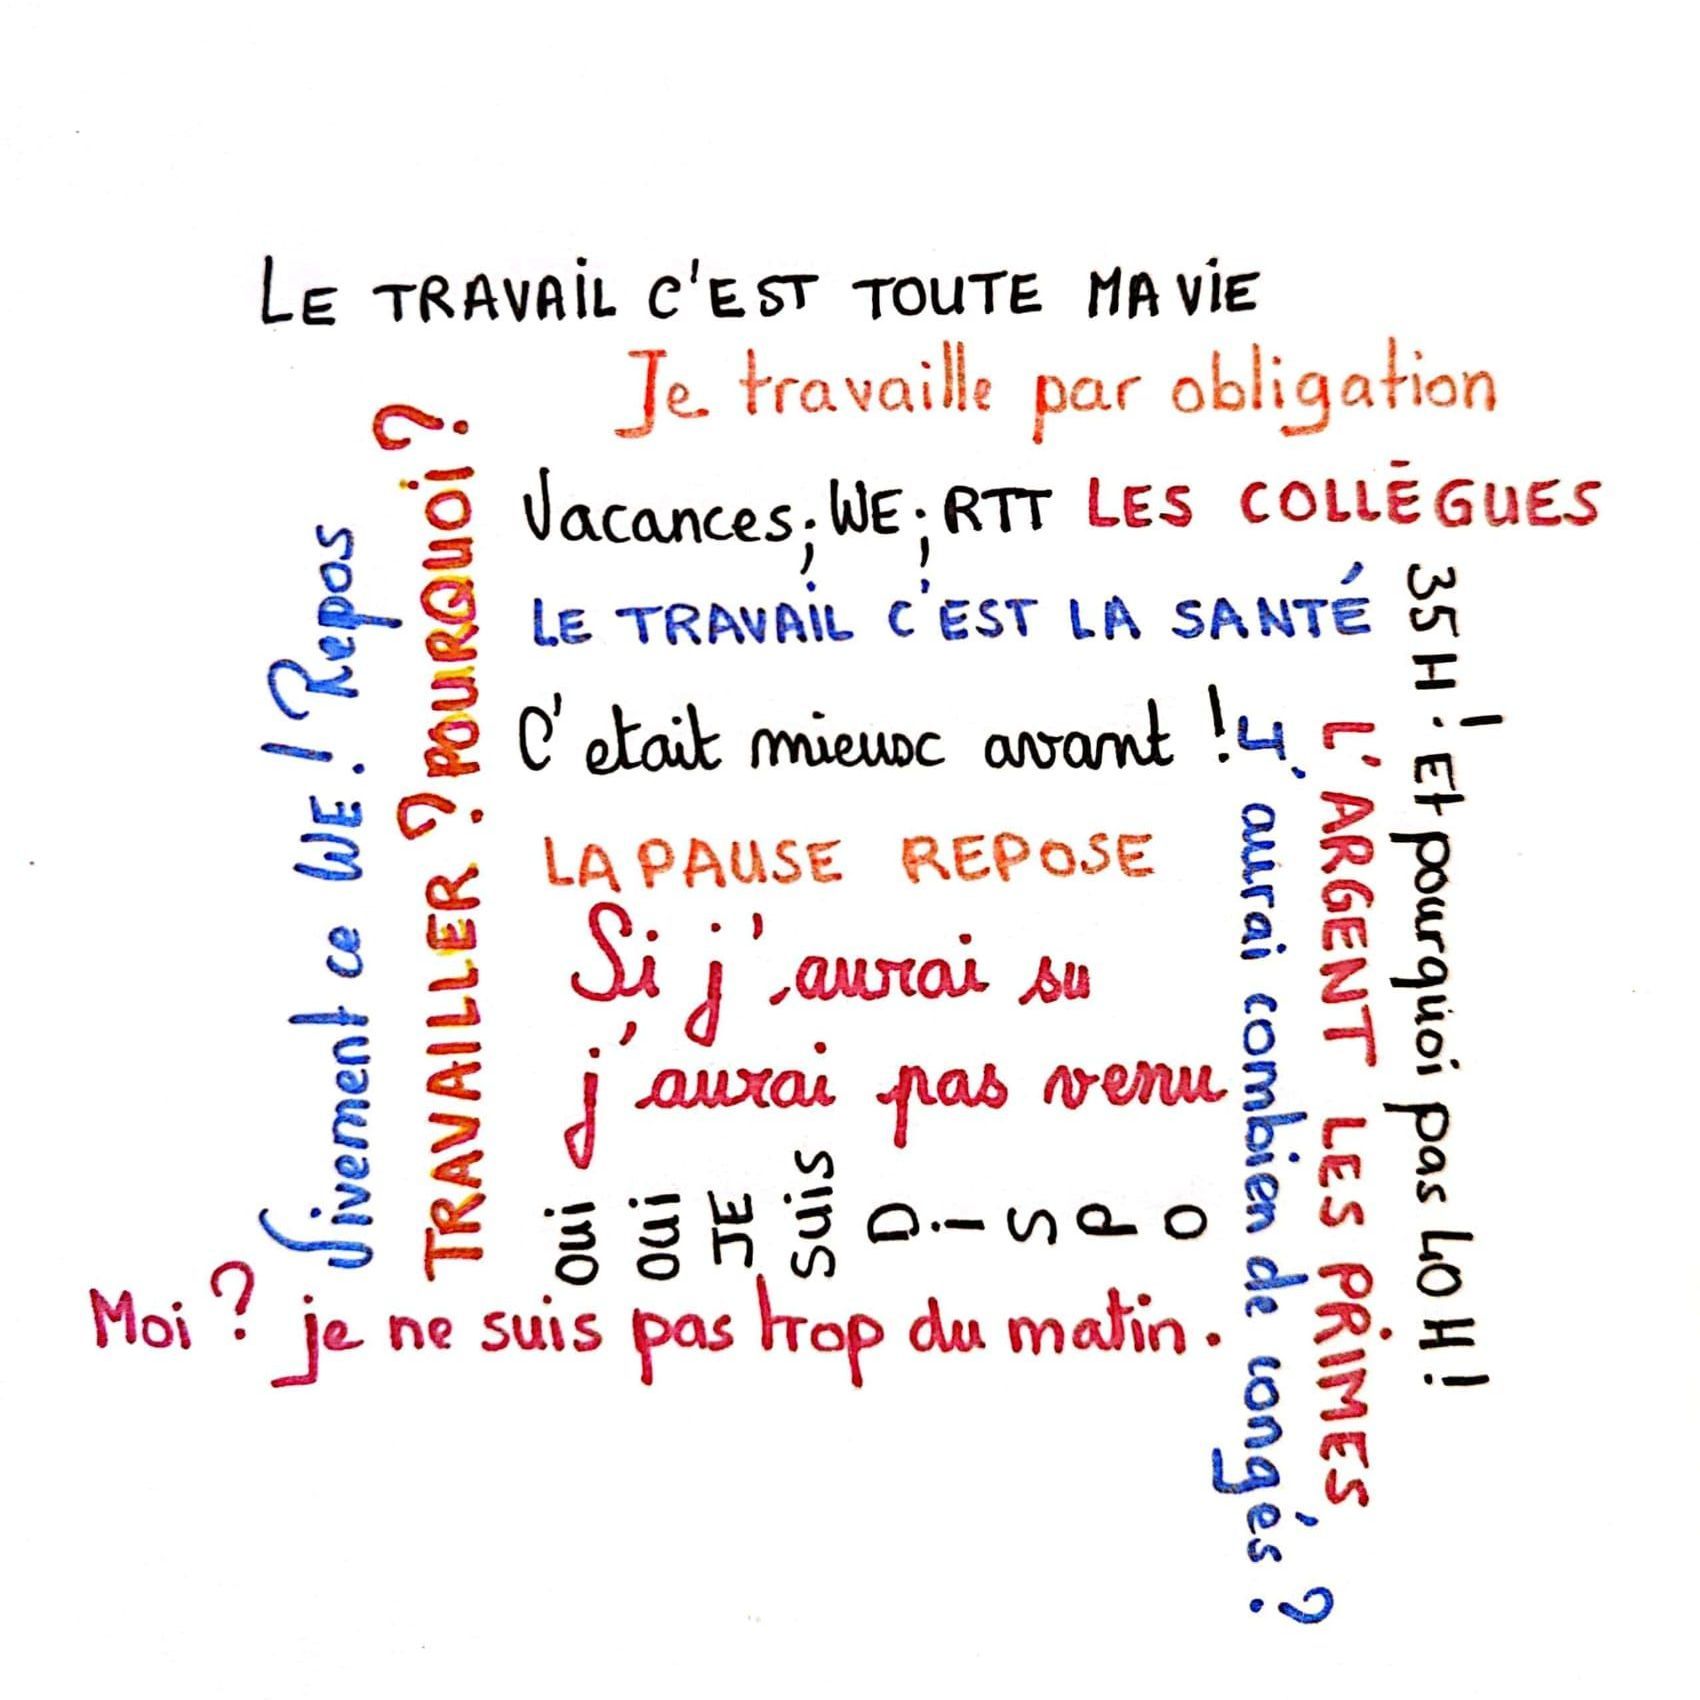 LE TRAVAIL C'EST TOUTE MA VIE
Je travaille par obligation
Vacances; WE; RTT LES COLLÈGUES
LE TRAVAIL C'EST LA SANTÉ
C'etait mieux avant !
LA PAUSE REPOSE
Si j'aurai su
j'aurai pas venu
oui oui JE suis DISPO
Moi ? je ne suis pas trop du matin.
Vivement ce WE ! Repos
TRAVAILLER ? POURQUOI ?
J'aurai combien de congés ?
L'ARGENT LES PRIMES
35H ! Et pourquoi pas 40H !